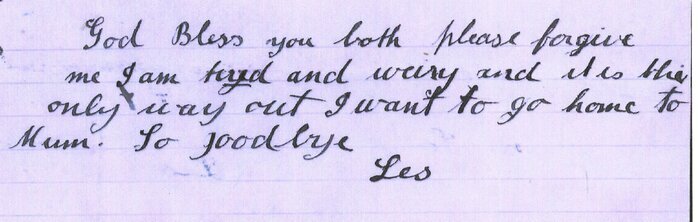 God Bless you both please forgive
me I am tryd and weiry and it is the
only way out I want to go home to
Mum. So goodbye
Les